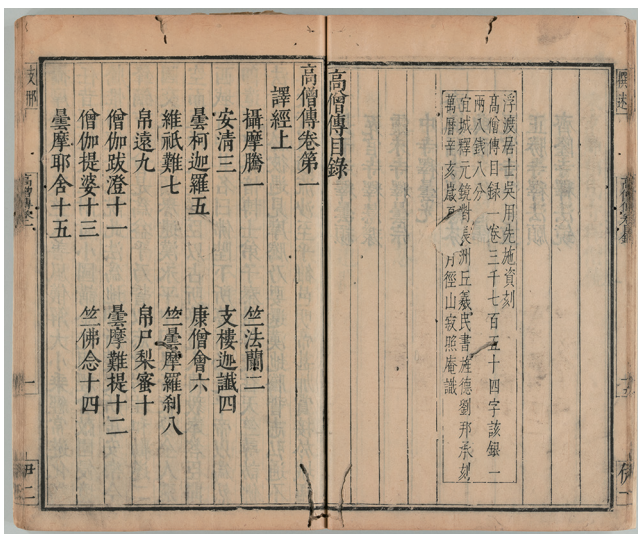 浮渡居士吳用先施資刻
高僧傳目錄一卷三千七百五十四字該銀一
兩八錢八分
宜城釋元鏡對長洲丘義民書旌德劉邦承刻
萬曆辛亥歲 月徑山寂照庵識
高僧傳目錄
高僧傳卷第一
譯經上
攝摩騰一 竺法蘭二
安清三 支樓迦讖四
曇柯迦羅五 康僧會六
維祇難七 竺曇摩羅刹八
帛遠九 帛尸梨蜜十
僧伽跋澄十一 曇摩難提十二
僧伽提婆十三 竺佛念十四
曇摩耶舍十五
高僧傳卷一
一
伊二